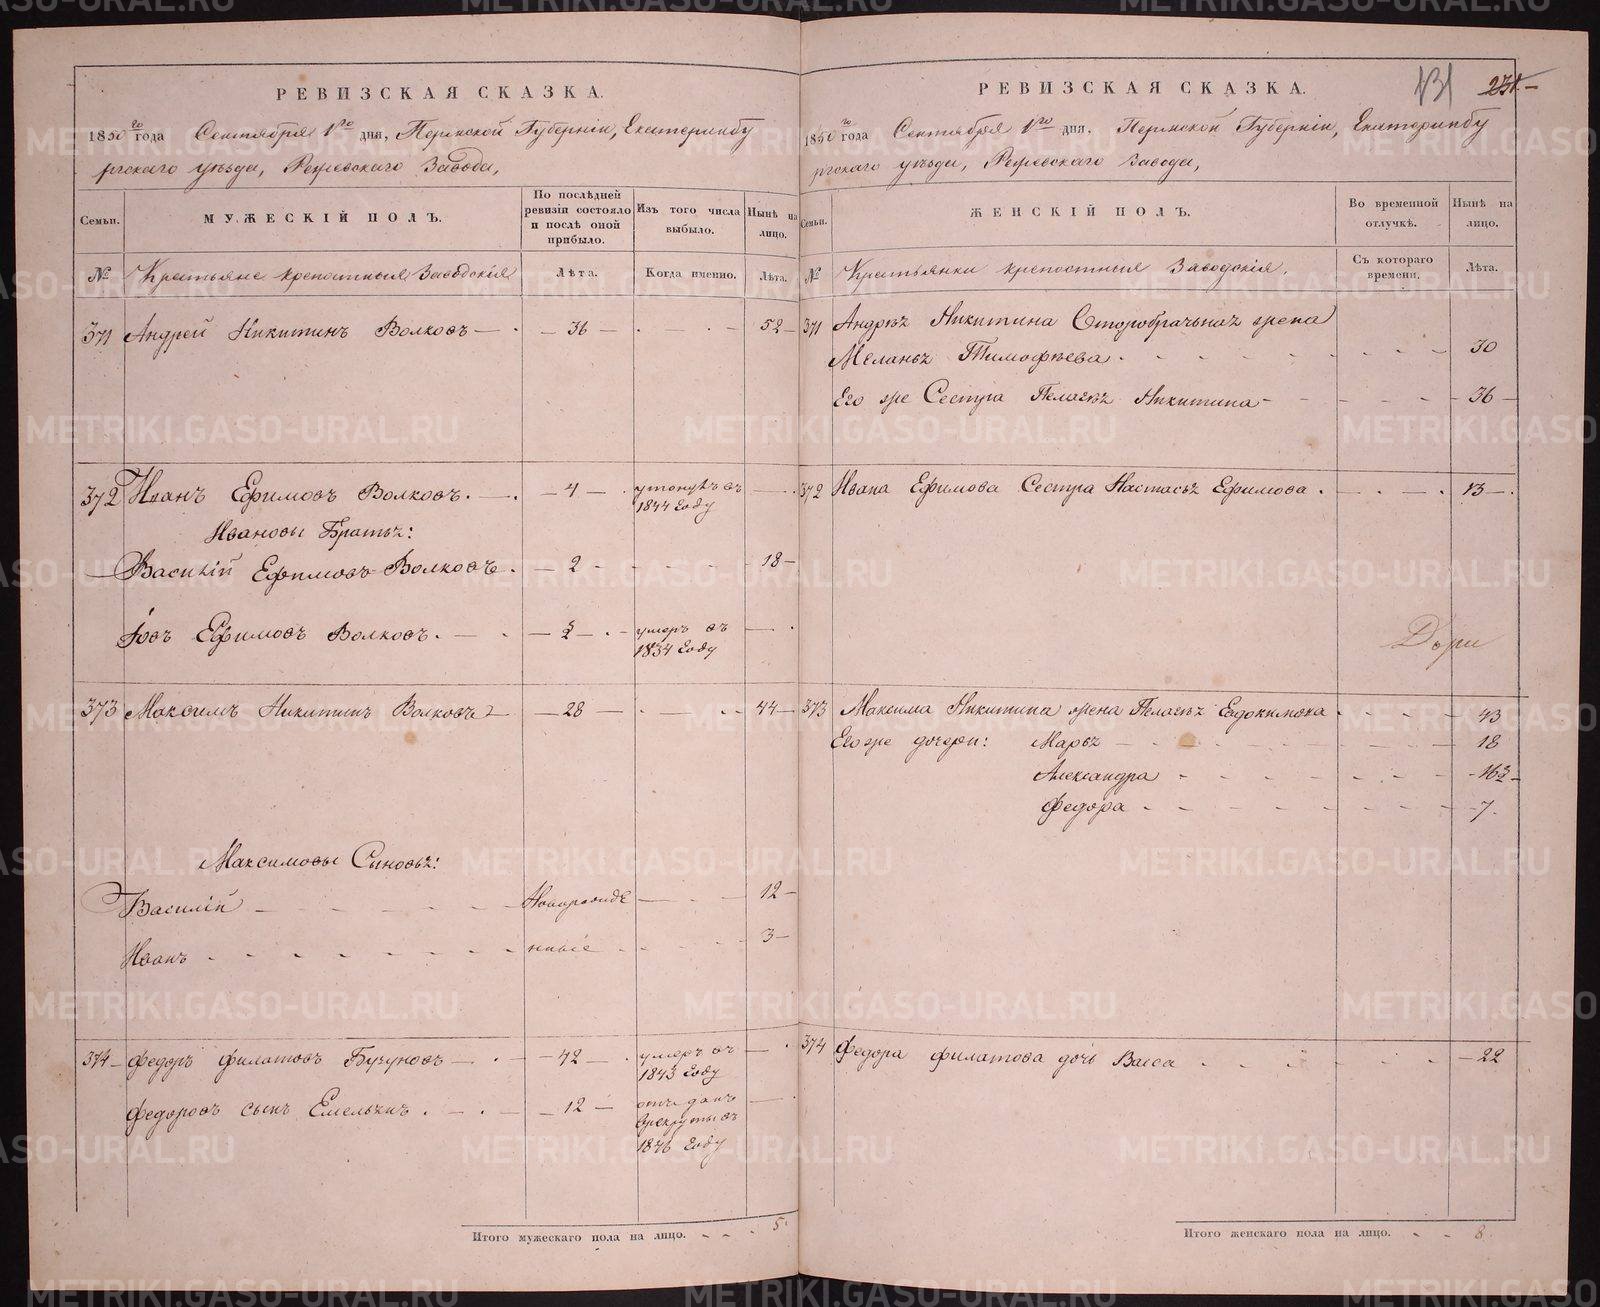 РЕВИЗСКАЯ СКАЗКА.
1850 го года Сентября 1го дня, Пермской Губерніи, Екатеринбу
ргскаго уѣзда, Режевскаго Завода,
Семьи.
МУЖЕСКІЙ ПОЛЪ.
По послѣдней ревизіи состояло и послѣ оной прибыло.
Изъ того числа выбыло.
Нынѣ на лицо.
№
Крестьяне крепостныя Заводскія
Лѣта.
Когда именно.
Лѣта.
371 Андрей Никитинъ Волковъ 36 52
372 Иванъ Ефимовъ Волковъ. 4 утонулъ въ
1844 году
Ивановы Братья:
Василій Ефимовъ Волковъ. 2 18
Іовъ Ефимовъ Волковъ. умеръ въ
1834 году
373 Максимъ Никитинъ Волковъ 28 44
Максимовы Сыновья:
Василій Новорожде 12
Иванъ нныіе 3
374 Федоръ Филатовъ Бугуновъ 42 умеръ въ
1843 году
Федоровъ сынъ Емельянъ. 12 отданъ
въ рекруты въ
1846 году
Итого мужескаго пола на лицо. 5.
131 231
РЕВИЗСКАЯ СКАЗКА.
1850 го года Сентября 1го дня, Пермской Губерніи, Екатеринбу
ргскаго уѣзда, Режевскаго Завода,
Семьи.
ЖЕНСКІЙ ПОЛЪ.
Во временной отлучкѣ.
Нынѣ на лицо.
№
Крестьянки крепостныя Заводскія.
Съ котораго времени.
Лѣта.
371 Андрея Никитина Второбрачная жена
Меланья Тимофѣева. 30
Его же Сестра Пелагея Никитина 36
372 Ивана Ефимова Сестра Настасья Ефимова. 13
373 Максима Никитина жена Пелагея Евдокимова 43
Его же дочери: Марья 18
Александра
Федора 7.
374 Федора Филатова дочь Васса 22
Итого женскаго пола на лицо. 8.
METRIKI.GASO-URAL.RU